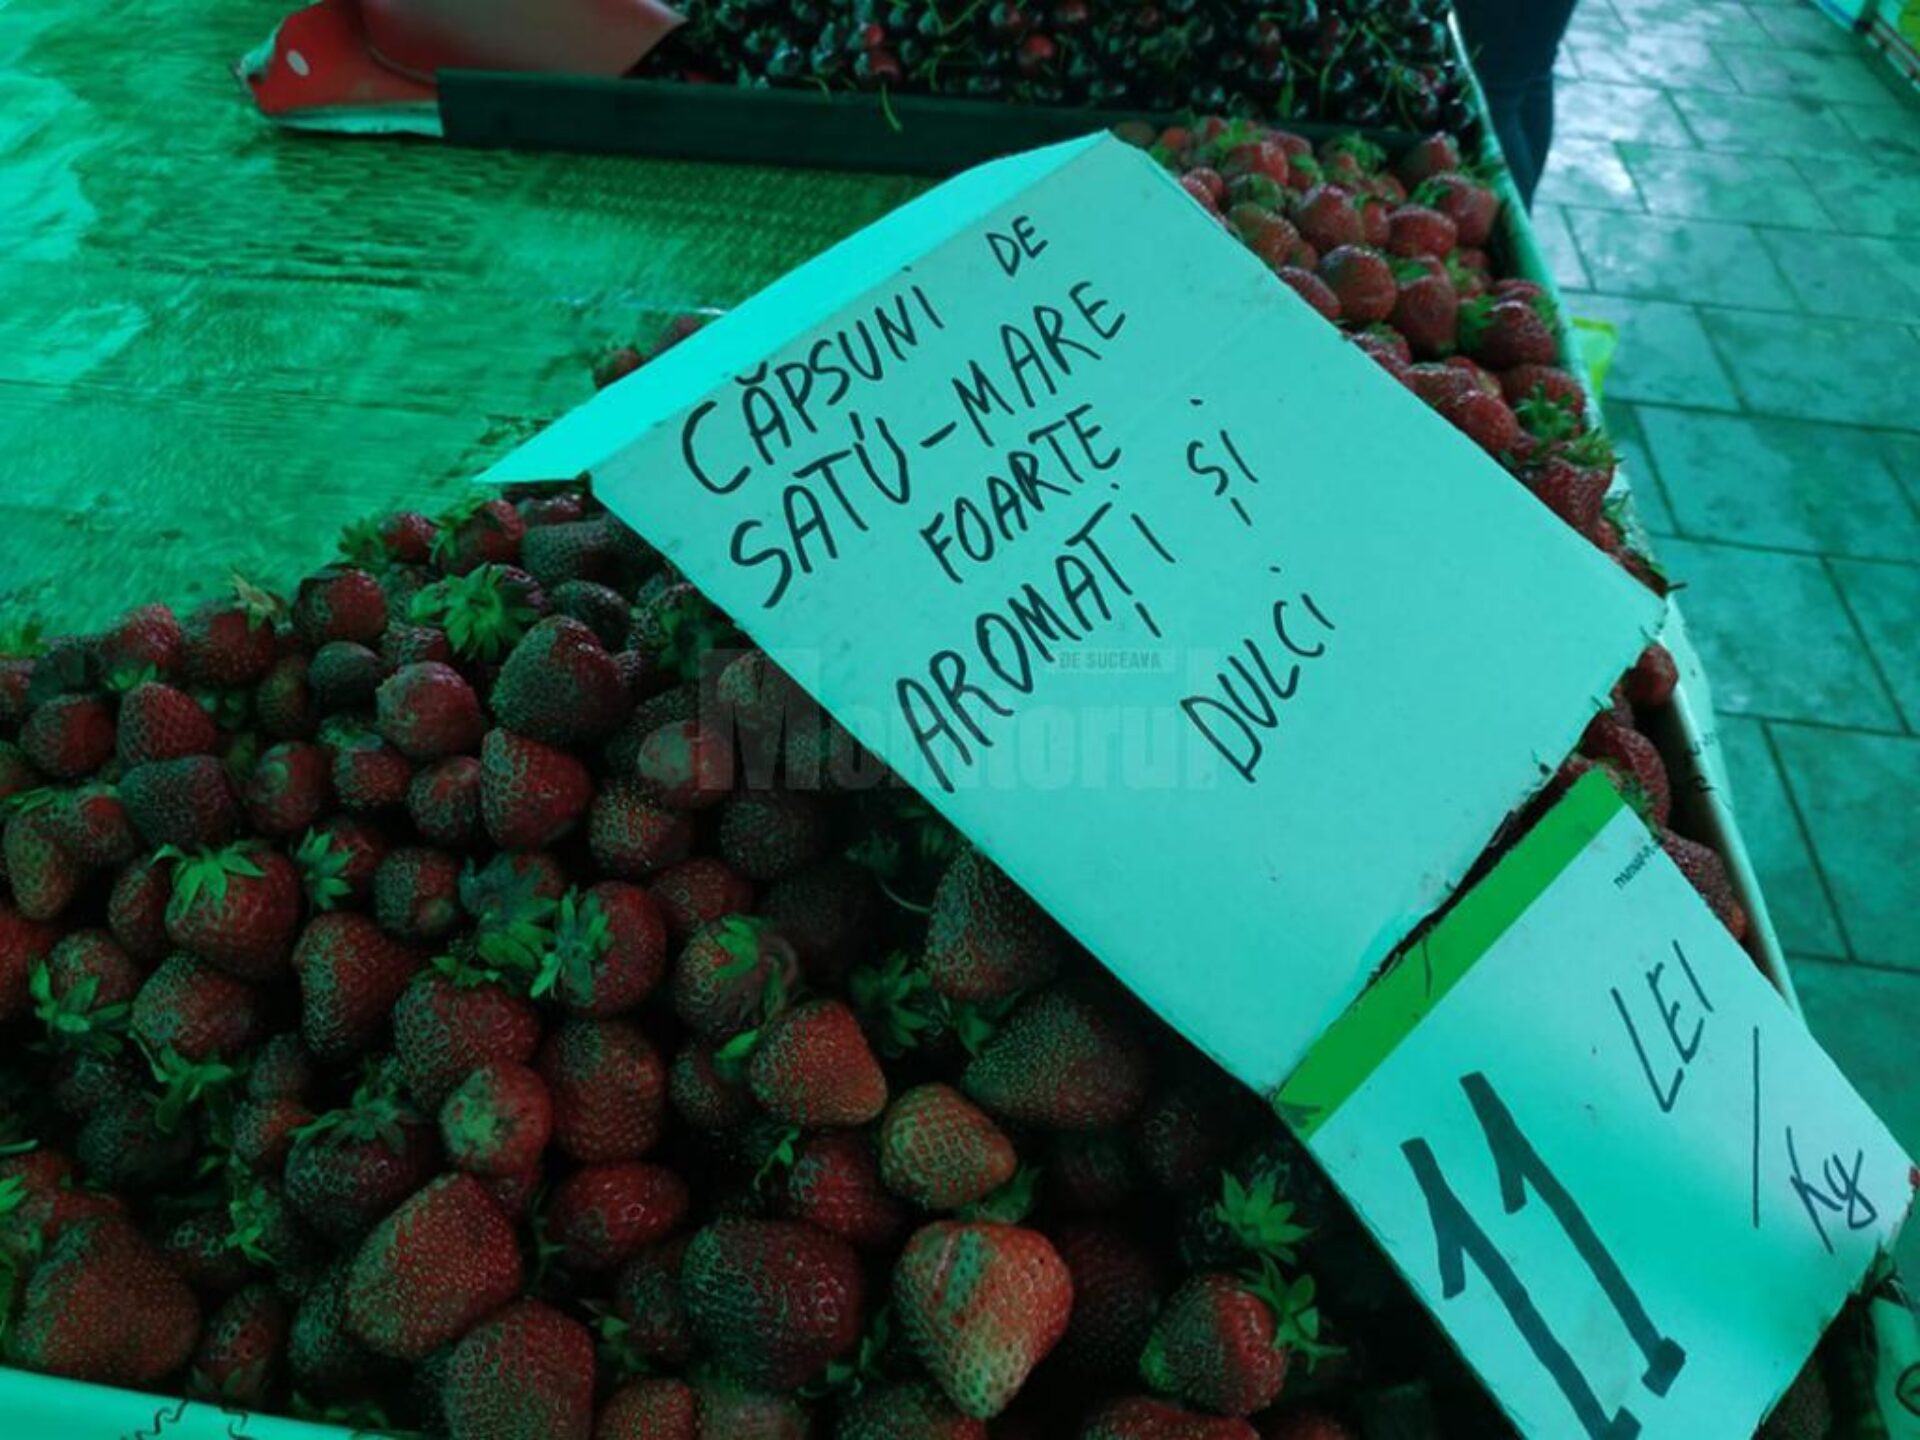 CĂPSUNI DE
SATU-MARE
FOARTE
AROMAȚI ȘI
DULCI
Monitorul
DE SUCEAVA
11 LEI / Kg